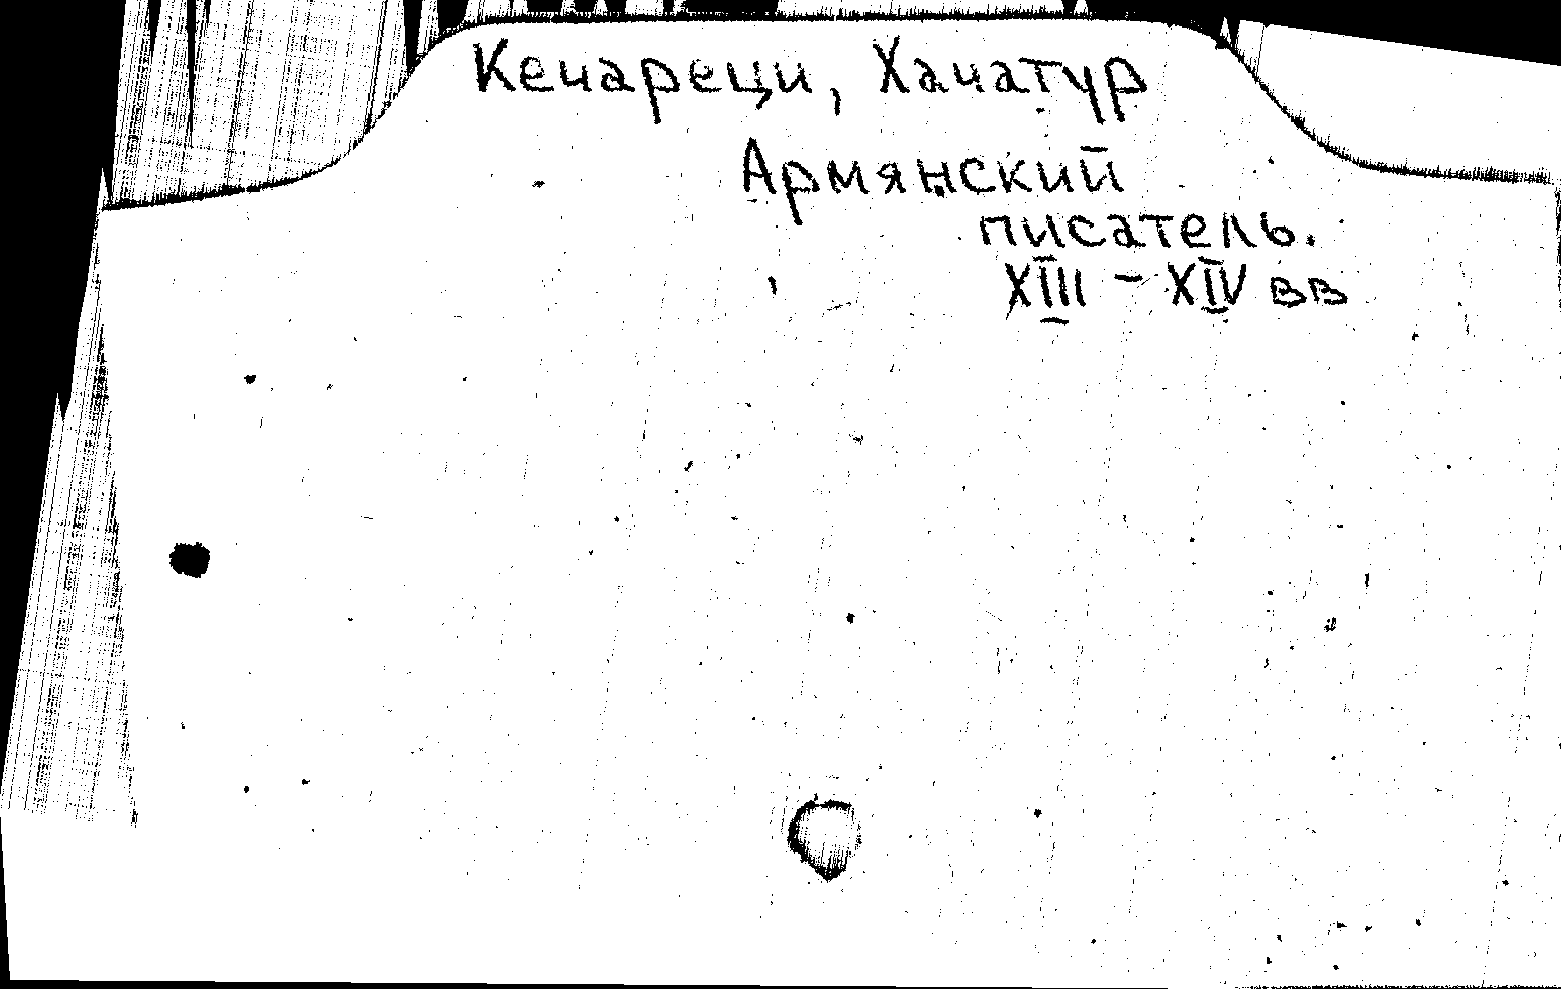 Кечареци, Хачатур
Армянский
писатель.
XIII - XIV вв